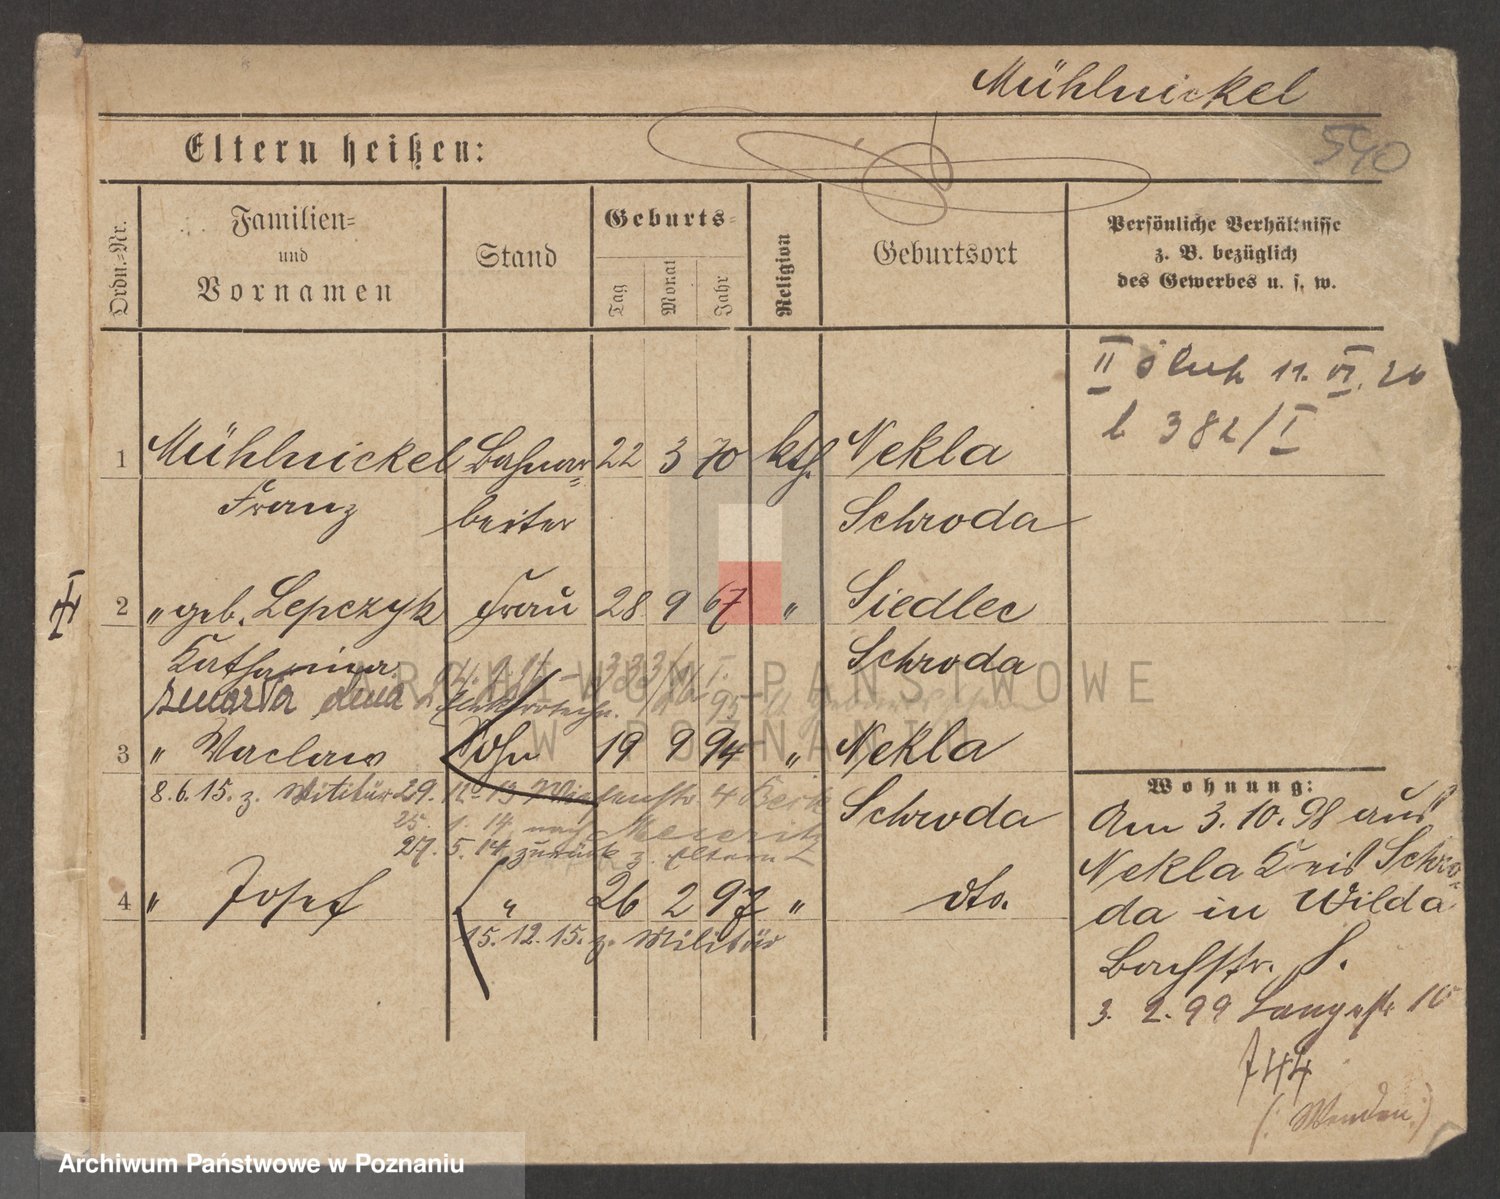 Mühlnickel
540
Eltern heißen:
Ordn.-Nr.
Familien-
und
Vornamen
Stand
Geburts-
Tag
Monat
Jahr
Religion
Geburtsort
Persönliche Verhältnisse
z. B. bezüglich
des Gewerbes u. s. w.
II 11. VI. 20
382/I
1 Mühlnickel Bahnar= 22 3 70 kth. Nekla
Franz beiter Schroda
2 " geb. Lepczyk Frau 28 9 67 " Siedlec
Katharina Schroda
zmarła dnia
3 " Waclaw Sohn 19 9 94 " Nekla
8.6.15. z. Militär 29. 12 13 4
Schroda
25. 1. 14 nach Meseritz
27. 5. 14 zurück z. Eltern
4 " Josef " 26 2 97 " dto.
15. 12. 15. z. Militär
Wohnung:
Am 3. 10. 98 aus
Nekla Kreis Schro-
da in Wilda
Bachstr. 8.
3. 2. 99 Langestr 10
744
(: Wenden :)
ARCHIWUM PAŃSTWOWE
W POZNANIU
Archiwum Państwowe w Poznaniu